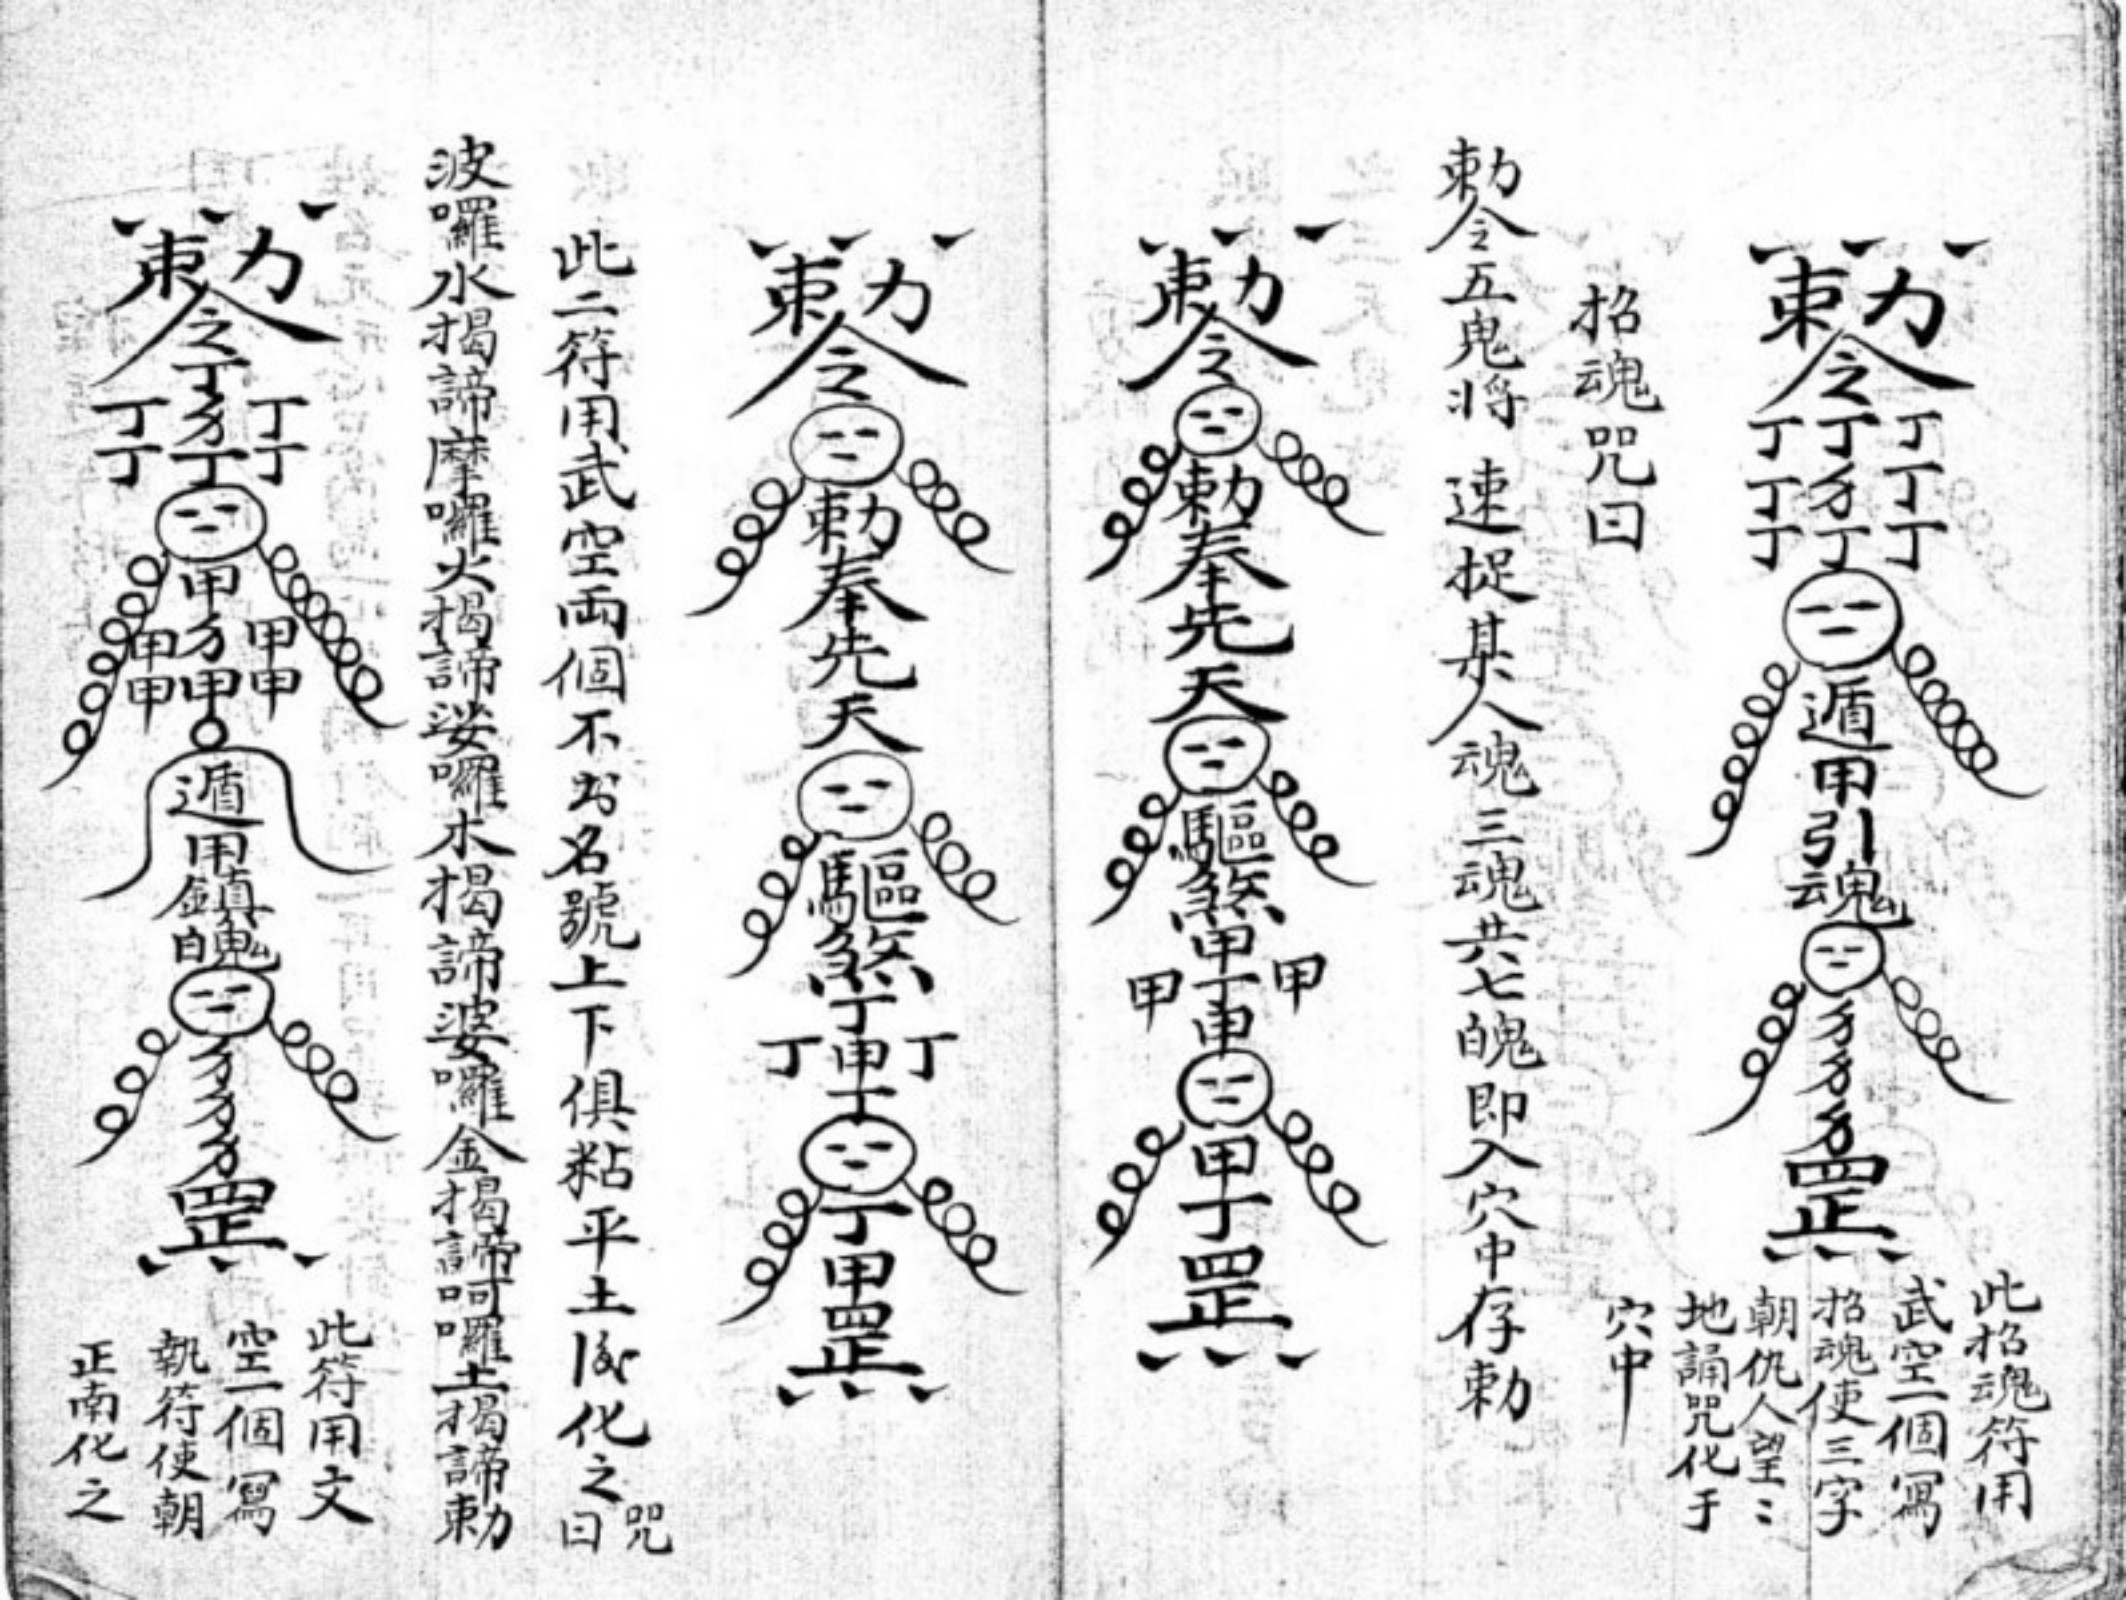 勅令
丁丁丁
丁方丁
丁丁丁
遁甲引魂
方方方
罡
此招魂符用
武空一個寫
招魂使三字
朝仇人望〻
地誦咒化于
穴中
招魂咒曰
勅令五鬼将 速捉某人魂三魂共七魄即入穴中存勅
勅令
勅奉先天
驅煞
甲丁甲
甲甲
甲丁罡
勅令
勅奉先天
驅煞
丁
丁甲丁
丁
丁甲罡
此二符用武空両個不出名號上下俱粘平土后化之咒曰
波囉水揭諦摩囉火揭諦娑囉木揭諦婆囉金揭諦呵囉土揭諦勅
勅令
丁
丁方丁
丁丁丁
甲
甲方甲
甲甲甲
遁甲鎮魄
方方方
罡
此符用文
空一個寫
執符使朝
正南化之